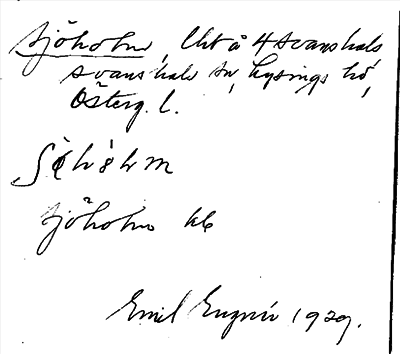 Sjöholm, Lht å 4 Svanshals
Svanshals sn, Lysings hd,
Österg. l.
Sjöholm kb
Emil 1929.